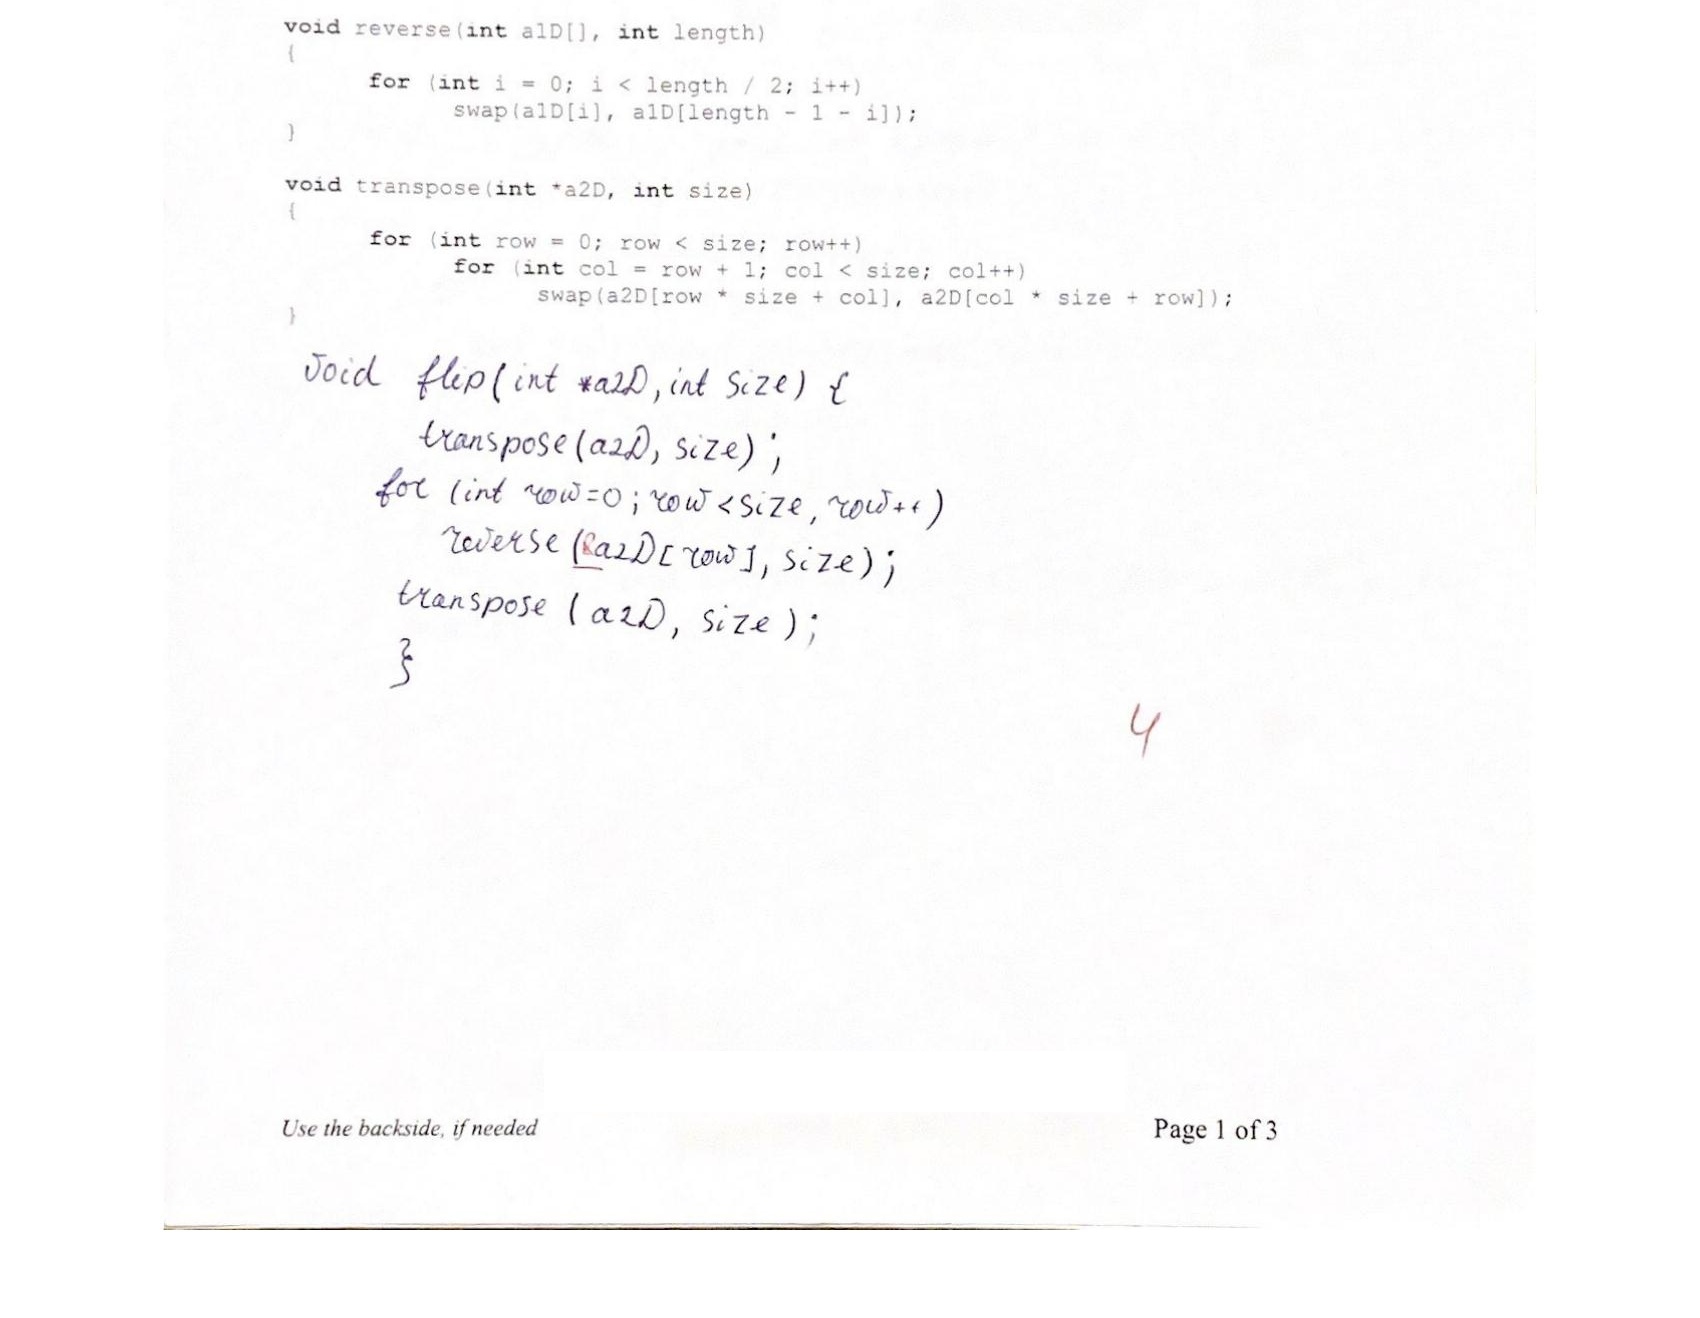 void reverse(int a1D[], int length)
{
for (int i = 0; i < length / 2; i++)
swap(a1D[i], a1D[length - 1 - i]);
}
void transpose(int *a2D, int size)
{
for (int row = 0; row < size; row++)
for (int col = row + 1; col < size; col++)
swap(a2D[row * size + col], a2D[col * size + row]);
}
void flip(int *a2D, int size) {
transpose(a2D, size);
for (int row=0; row<size, row++)
reverse(&a2D[row], size);
transpose (a2D, size);
}
4
Use the backside, if needed Page 1 of 3